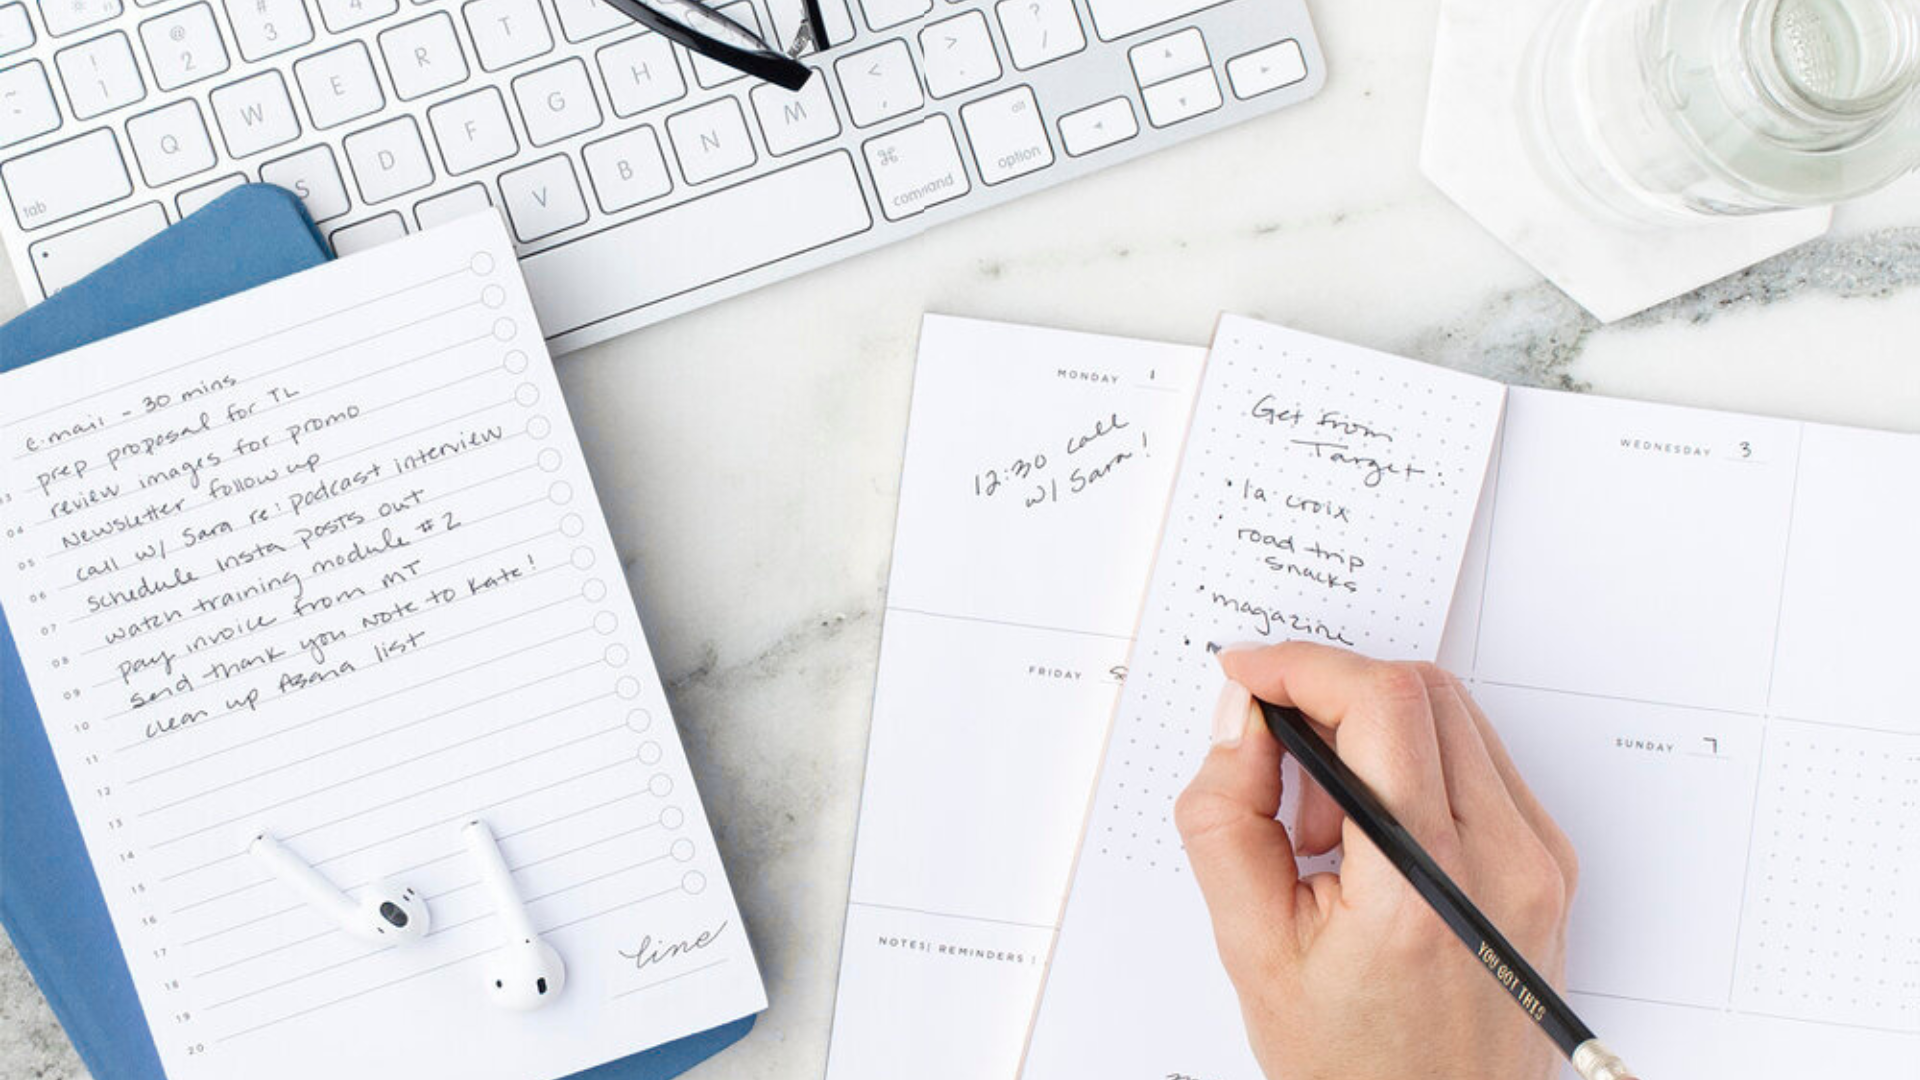 @
2
#
3
4
!
1
~
Q
W
E
R
T
tab
S
D
F
G
H
V
B
N
M
<
,
>
.
?
/
⌘
command
alt
option
e-mail - 30 mins
03 prep proposal for TL
04 review images for promo
05 Newsletter follow up
06 call w/ Sara re: podcast interview
07 schedule Insta posts out
08 watch training module #2
09 pay invoice from MT
10 send thank you note to Kate!
11 clean up Asana list
12
13
14
15
16
17
18
19
20
line
MONDAY 1
12:30 call
w/ Sara!
FRIDAY
NOTES| REMINDERS |
Get from
Target:
• la croix
• road trip
snacks
• magazine
•
WEDNESDAY 3
SUNDAY 7
YOU GOT THIS